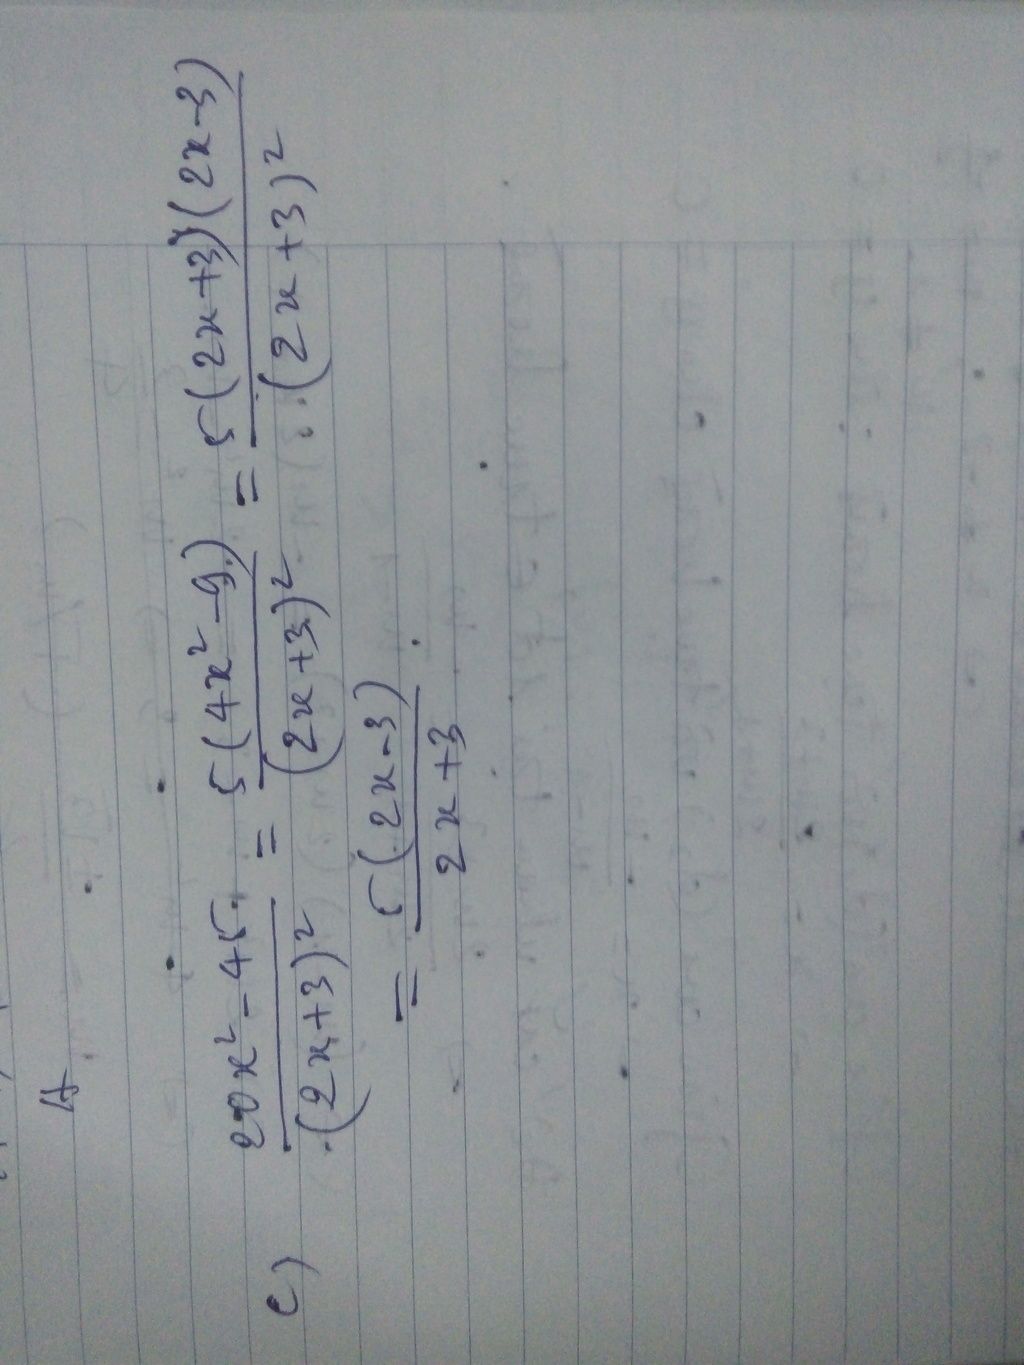 4
c) (20x² - 45)/(2x+3)² = 5(4x² - 9)/(2x+3)² = 5(2x+3)(2x-3)/(2x+3)²
= 5(2x-3)/(2x+3)